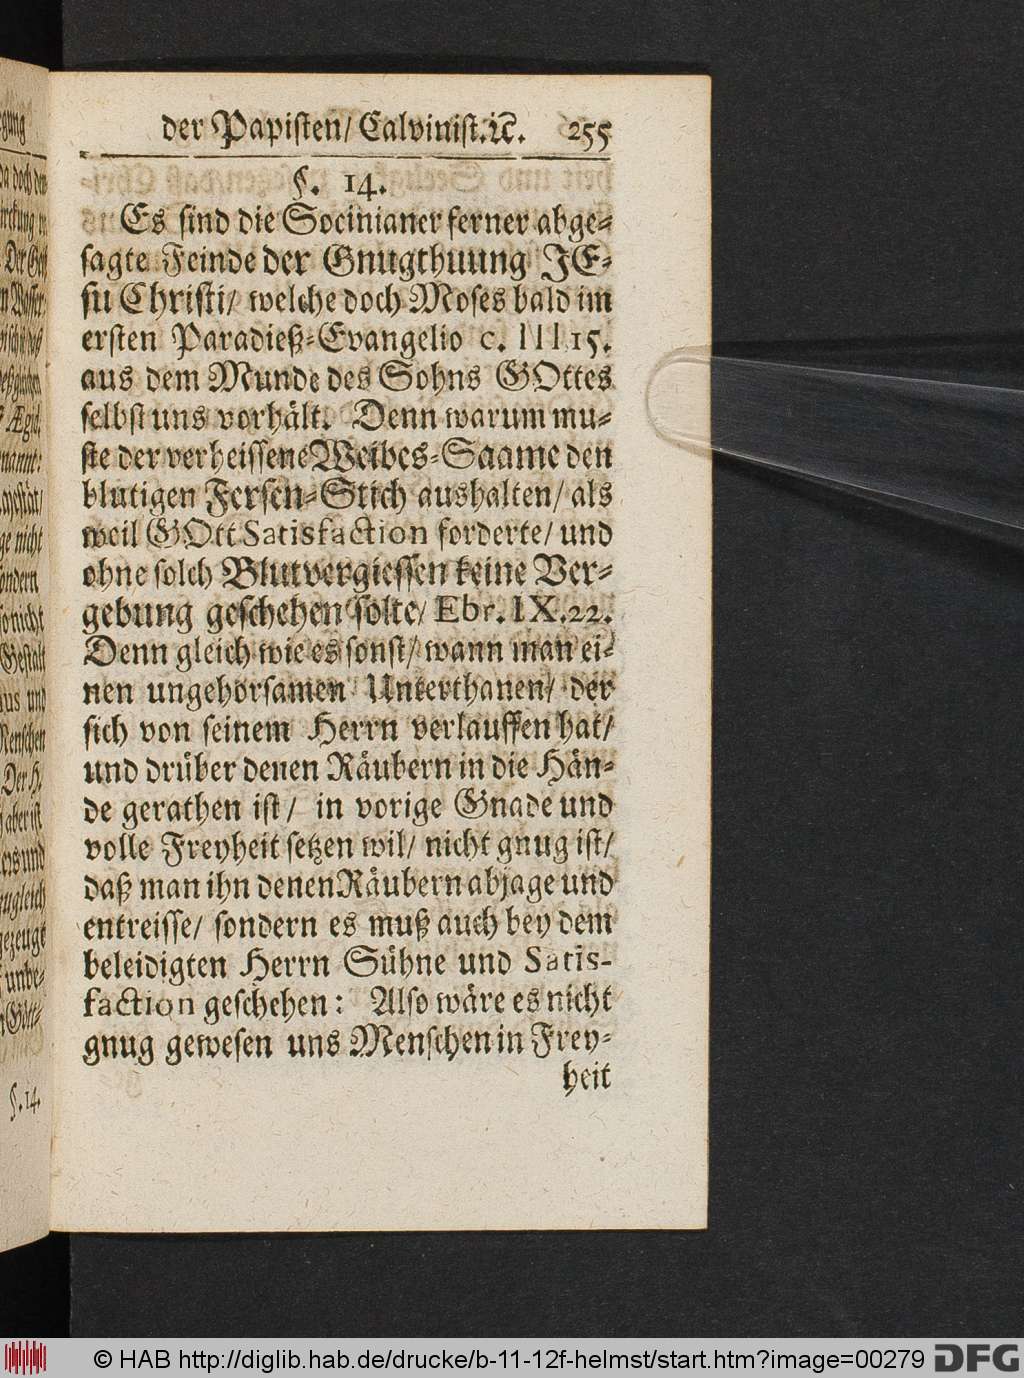 der Papisten/ Calvinist.ꝛc. 255
§. 14.
Es sind die Socinianer ferner abge-
sagte Feinde der Gnugthuung JE-
su Christi/ welche doch Moses bald im
ersten Paradieß-Evangelio c. III 15.
aus dem Munde des Sohns GOttes
selbst uns vorhält. Denn warum mu-
ste der verheissene Weibes-Saame den
blutigen Fersen-Stich aushalten/ als
weil GOtt Satisfaction forderte/ und
ohne solch Blutvergiessen keine Ver-
gebung geschehen solte/ Ebr. IX. 22.
Denn gleich wie es sonst/ wann man ei-
nen ungehorsamen Unterthanen/ der
sich von seinem Herrn verlauffen hat/
und drüber denen Räubern in die Hän-
de gerathen ist/ in vorige Gnade und
volle Freyheit setzen wil/ nicht gnug ist/
daß man ihn denen Räubern abjage und
entreisse/ sondern es muß auch bey dem
beleidigten Herrn Sühne und Satis-
faction geschehen: Also wäre es nicht
gnug gewesen uns Menschen in Frey-
heit
§. 14.
© HAB http://diglib.hab.de/drucke/b-11-12f-helmst/start.htm?image=00279 DFG